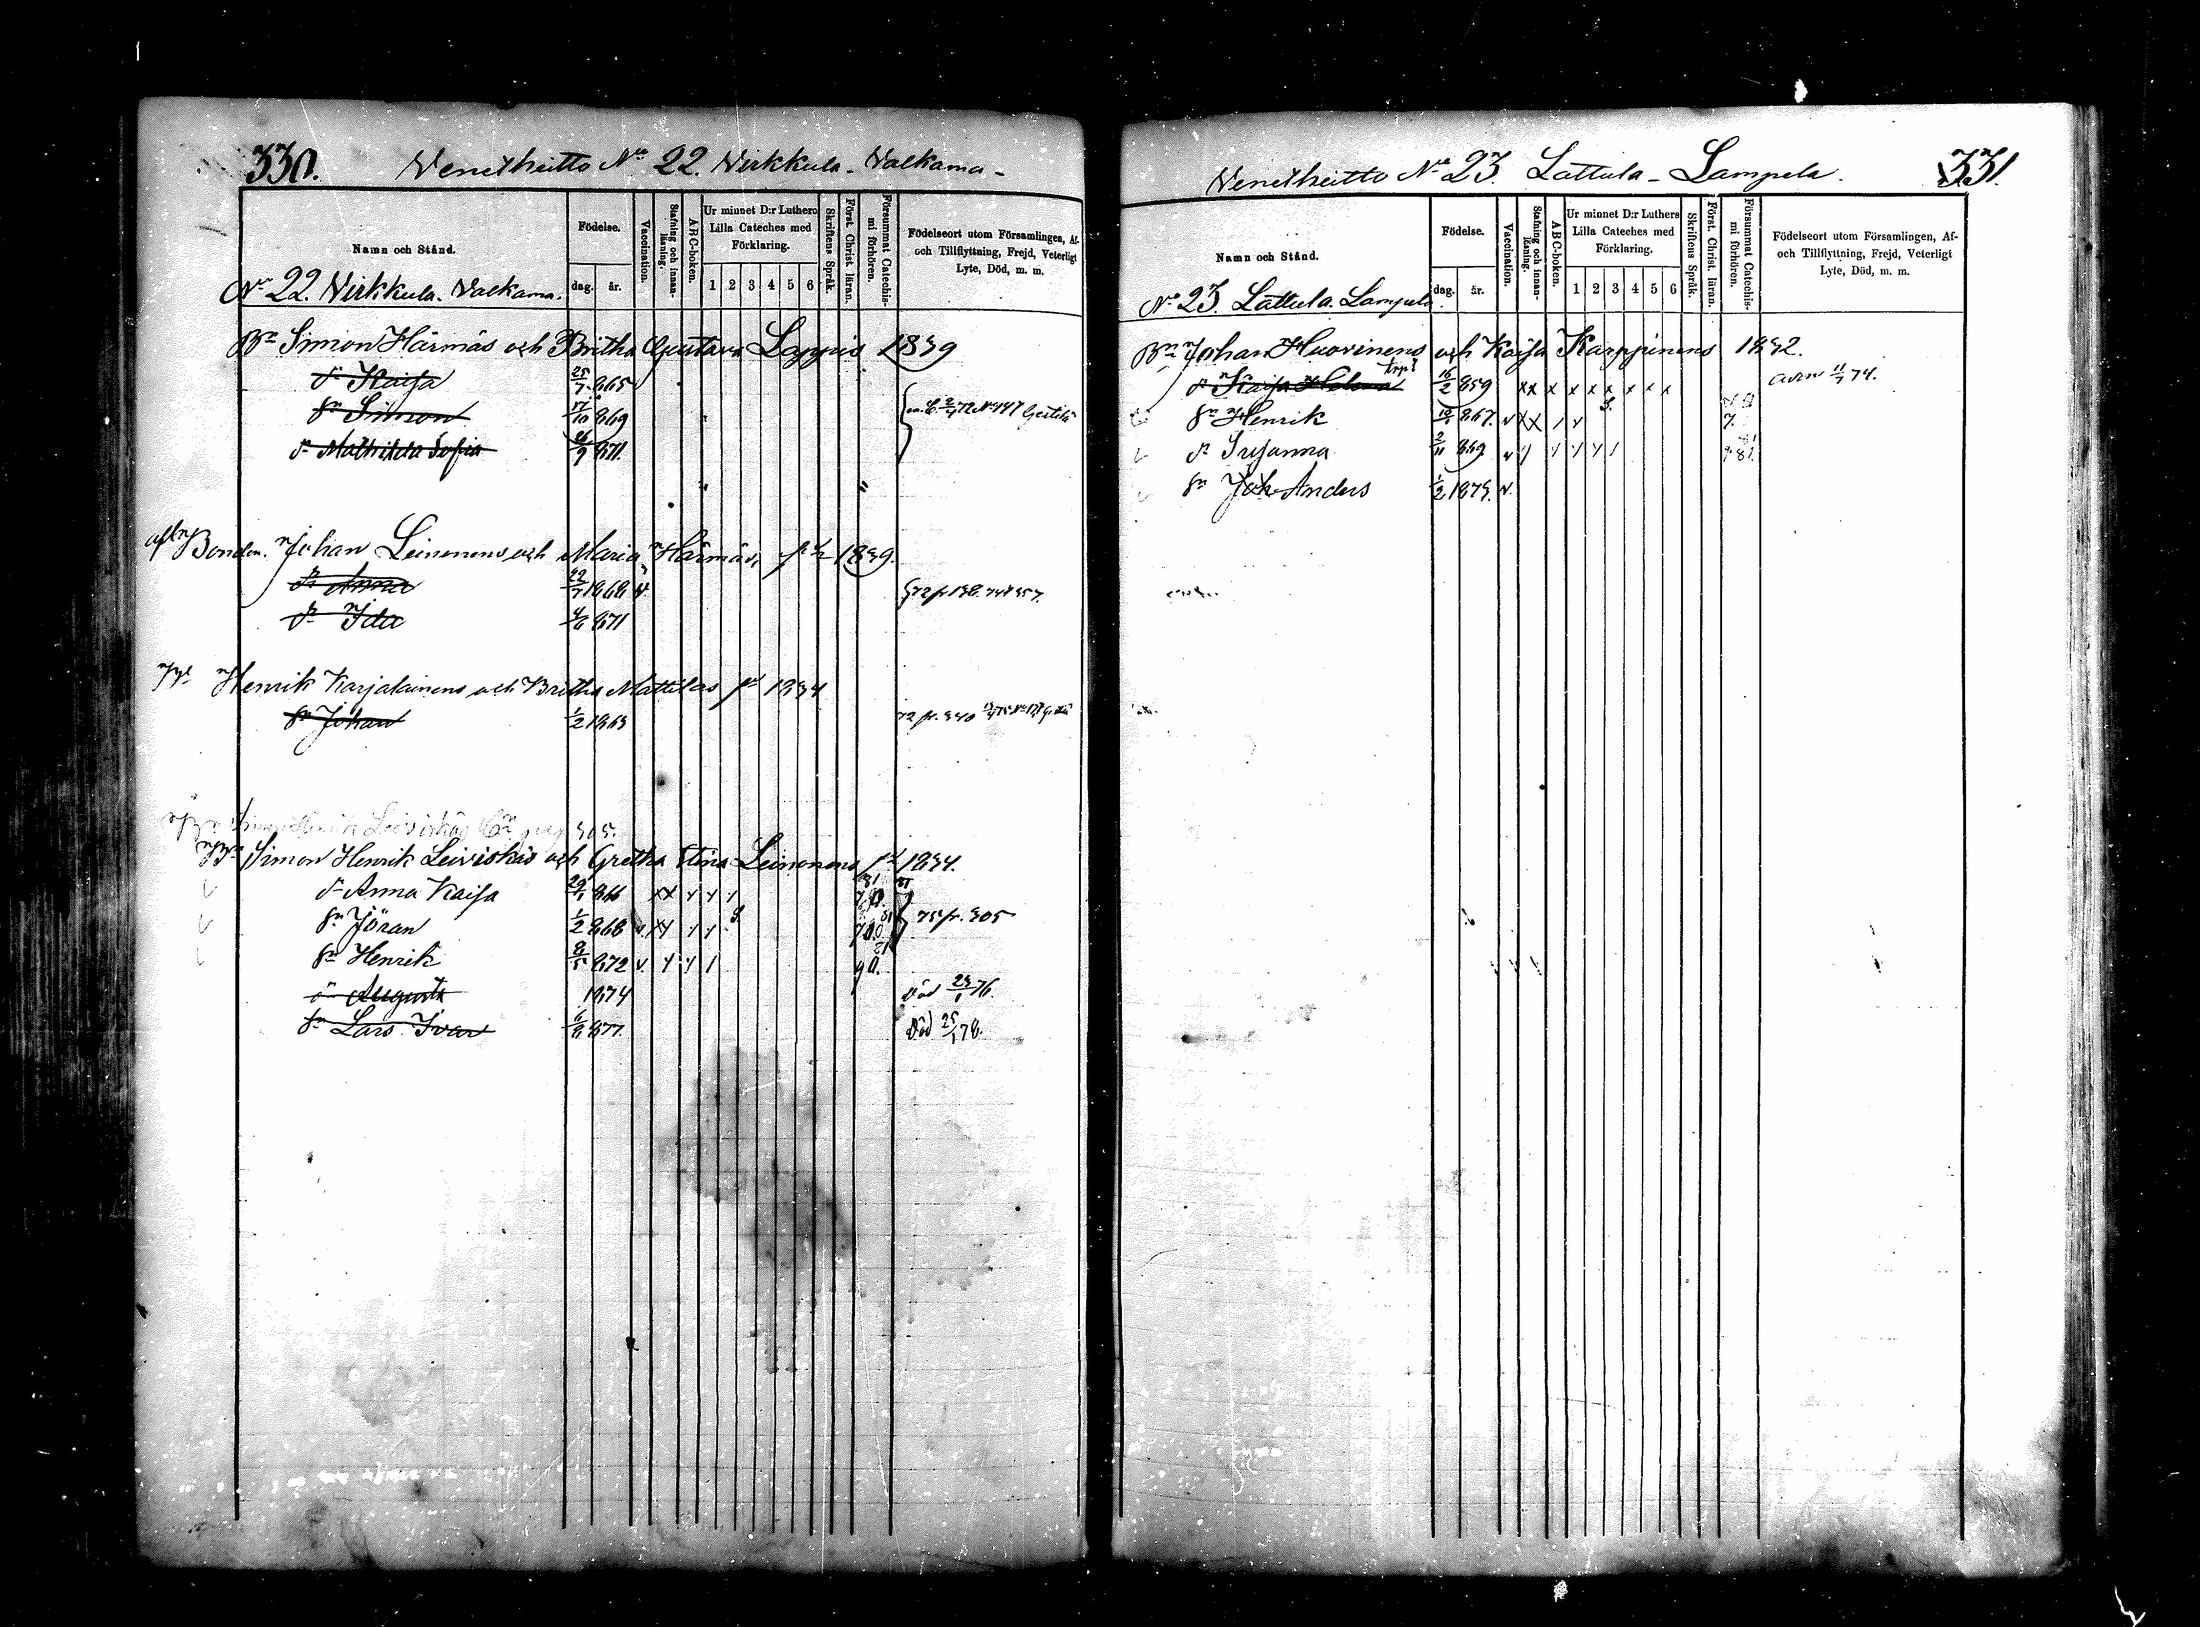 330.
Venetheitto No 22. Virkkula - Valkama -
Namn och Stånd.
Födelse.
dag.
år.
Vaccination.
Stafning och innan-läsning.
ABC-boken.
Ur minnet D:r Luthers
Lilla Cateches med
Förklaring.
1 2 3 4 5 6
Skriftens Språk.
Först. Christ. läran.
Försummat Catechis-
mi förhören.
Födelseort utom Församlingen, Af-
och Tillflyttning, Frejd, Veterligt
Lyte, Död, m. m.
No 22. Virkkula. Valkama.
Bn Simon Härmäs och Britha Gustava Lappis 1839
dr Kaisa 25/7 865
sn Simon 17/10 869
dr Mathilda Sofia 26/9 871.
Bonden. Johan Leinonens och Maria Härmäs, 1839.
dr Anna 22/7 1868 v.
dr Ida 4/6 871
Henrik Karjalainens och Britha Mattilas 1834
sn Johan 1/2 1863
72 fr. 340
305.
Simon Henrik Leiviskäs och Gretha Stina Leinonens 1834.
dr Anna Kaisa 29/1 866
sn Jöran 1/2 868
75 fr. 305
sn Henrik 8/5 872
dr Augusta 1874 Död 23/1 76.
sn Lars Ivar 6/8 877. Död 25/1 78.
Venetheitto No 23. Lattula - Lampela.
331.
Namn och Stånd.
Födelse.
dag.
år.
Vaccination.
Stafning och innan-läsning.
ABC-boken.
Ur minnet D:r Luthers
Lilla Cateches med
Förklaring.
1 2 3 4 5 6
Skriftens Språk.
Först. Christ. läran.
Försummat Catechis-
mi förhören.
Födelseort utom Församlingen, Af-
och Tillflyttning, Frejd, Veterligt
Lyte, Död, m. m.
No 23. Lattula. Lampela.
Bn Johan Huovinens och Kaisa Karppinens 1832.
dr Kaisa Helena 16/2 859 xx x x x x x x x 11/7 74.
sn Henrik 867.
dr Susanna 2/11 869
sn Joh. Anders 1/2 1873. v.